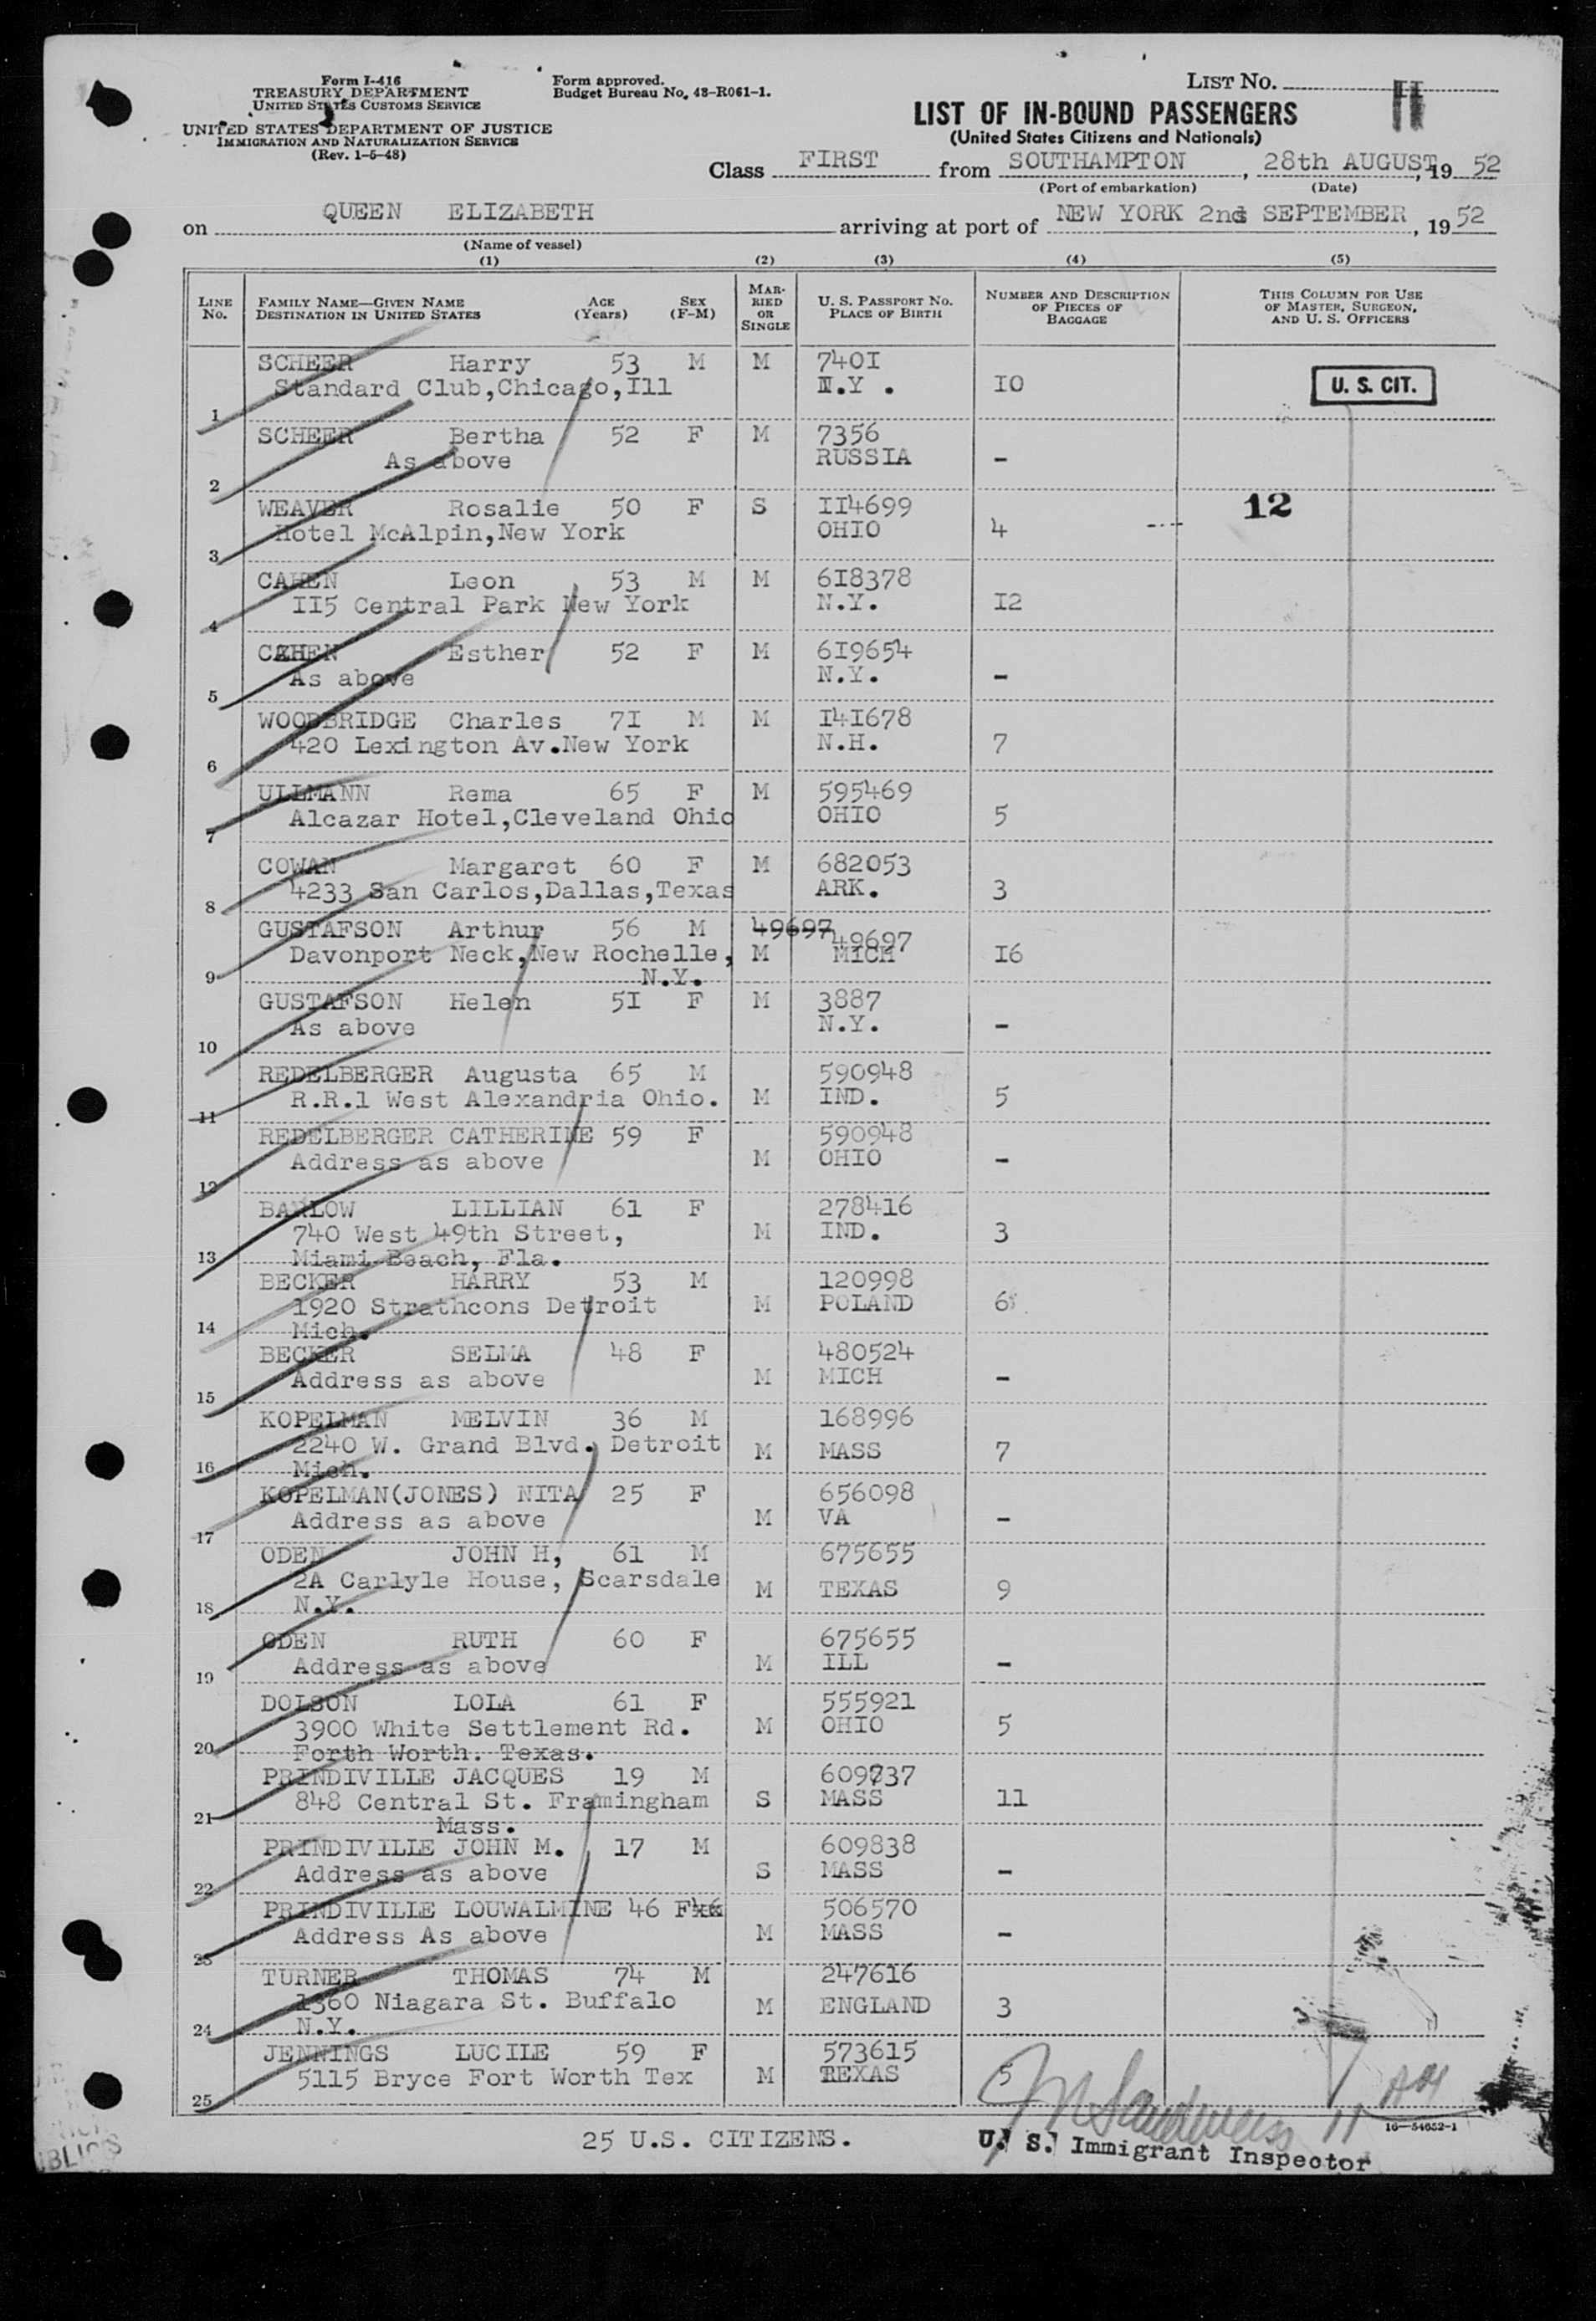 Form I-416
TREASURY DEPARTMENT
UNITED STATES CUSTOMS SERVICE
UNITED STATES DEPARTMENT OF JUSTICE
IMMIGRATION AND NATURALIZATION SERVICE
(Rev. 1-5-48)
Form approved.
Budget Bureau No. 43-R061-1.
LIST NO. 11
LIST OF IN-BOUND PASSENGERS
(United States Citizens and Nationals)
Class FIRST from SOUTHAMPTON, 28th AUGUST, 19 52
(Port of embarkation) (Date)
on QUEEN ELIZABETH arriving at port of NEW YORK 2nd SEPTEMBER, 19 52
(Name of vessel)
(1) (2) (3) (4) (5)
LINE No. FAMILY NAME—GIVEN NAME DESTINATION IN UNITED STATES AGE (Years) SEX (F-M) MARRIED OR SINGLE U. S. PASSPORT NO. PLACE OF BIRTH NUMBER AND DESCRIPTION OF PIECES OF BAGGAGE THIS COLUMN FOR USE OF MASTER, SURGEON, AND U. S. OFFICERS
SCHEER Harry 53 M M 7401
1 Standard Club,Chicago,Ill N.Y . 10 U. S. CIT.
SCHEER Bertha 52 F M 7356
2 As above RUSSIA -
WEAVER Rosalie 50 F S II4699 12
3 Hotel McAlpin,New York OHIO 4
CAHEN Leon 53 M M 6I8378
4 II5 Central Park New York N.Y. I2
CAHEN Esther 52 F M 6I9654
5 As above N.Y. -
WOODBRIDGE Charles 7I M M I4I678
6 420 Lexington Av.New York N.H. 7
ULLMANN Rema 65 F M 595469
7 Alcazar Hotel,Cleveland Ohio OHIO 5
COWAN Margaret 60 F M 682053
8 4233 San Carlos,Dallas,Texas ARK. 3
GUSTAFSON Arthur 56 M 49697 49697
9 Davonport Neck,New Rochelle, M MICH I6
N.Y.
GUSTAFSON Helen 5I F M 3887
10 As above N.Y. -
REDELBERGER Augusta 65 M 590948
11 R.R.1 West Alexandria Ohio. M IND. 5
REDELBERGER CATHERINE 59 F 590948
12 Address as above M OHIO -
BARLOW LILLIAN 61 F 278416
740 West 49th Street, M IND. 3
13 Miami Beach, Fla.
BECKER HARRY 53 M 120998
1920 Strathcons Detroit M POLAND 6
14 Mich.
BECKER SELMA 48 F 480524
15 Address as above M MICH -
KOPELMAN MELVIN 36 M 168996
2240 W. Grand Blvd. Detroit M MASS 7
16 Mich.
KOPELMAN(JONES) NITA 25 F 656098
17 Address as above M VA -
ODEN JOHN H, 61 M 675655
2A Carlyle House, Scarsdale M TEXAS 9
18 N.Y.
ODEN RUTH 60 F 675655
19 Address as above M ILL -
DOLSON LOLA 61 F 555921
3900 White Settlement Rd. M OHIO 5
20 Forth Worth. Texas.
PRINDIVILLE JACQUES 19 M 609737
21 848 Central St. Framingham S MASS 11
Mass.
PRINDIVILLE JOHN M. 17 M 609838
22 Address as above S MASS -
PRINDIVILLE LOUWALMINE 46 F 506570
23 Address As above M MASS -
TURNER THOMAS 74 M 247616
1360 Niagara St. Buffalo M ENGLAND 3
24 N.Y.
JENNINGS LUCILE 59 F 573615
25 5115 Bryce Fort Worth Tex M TEXAS 5
16—54652-1
25 U.S. CITIZENS.
U. S. Immigrant Inspector